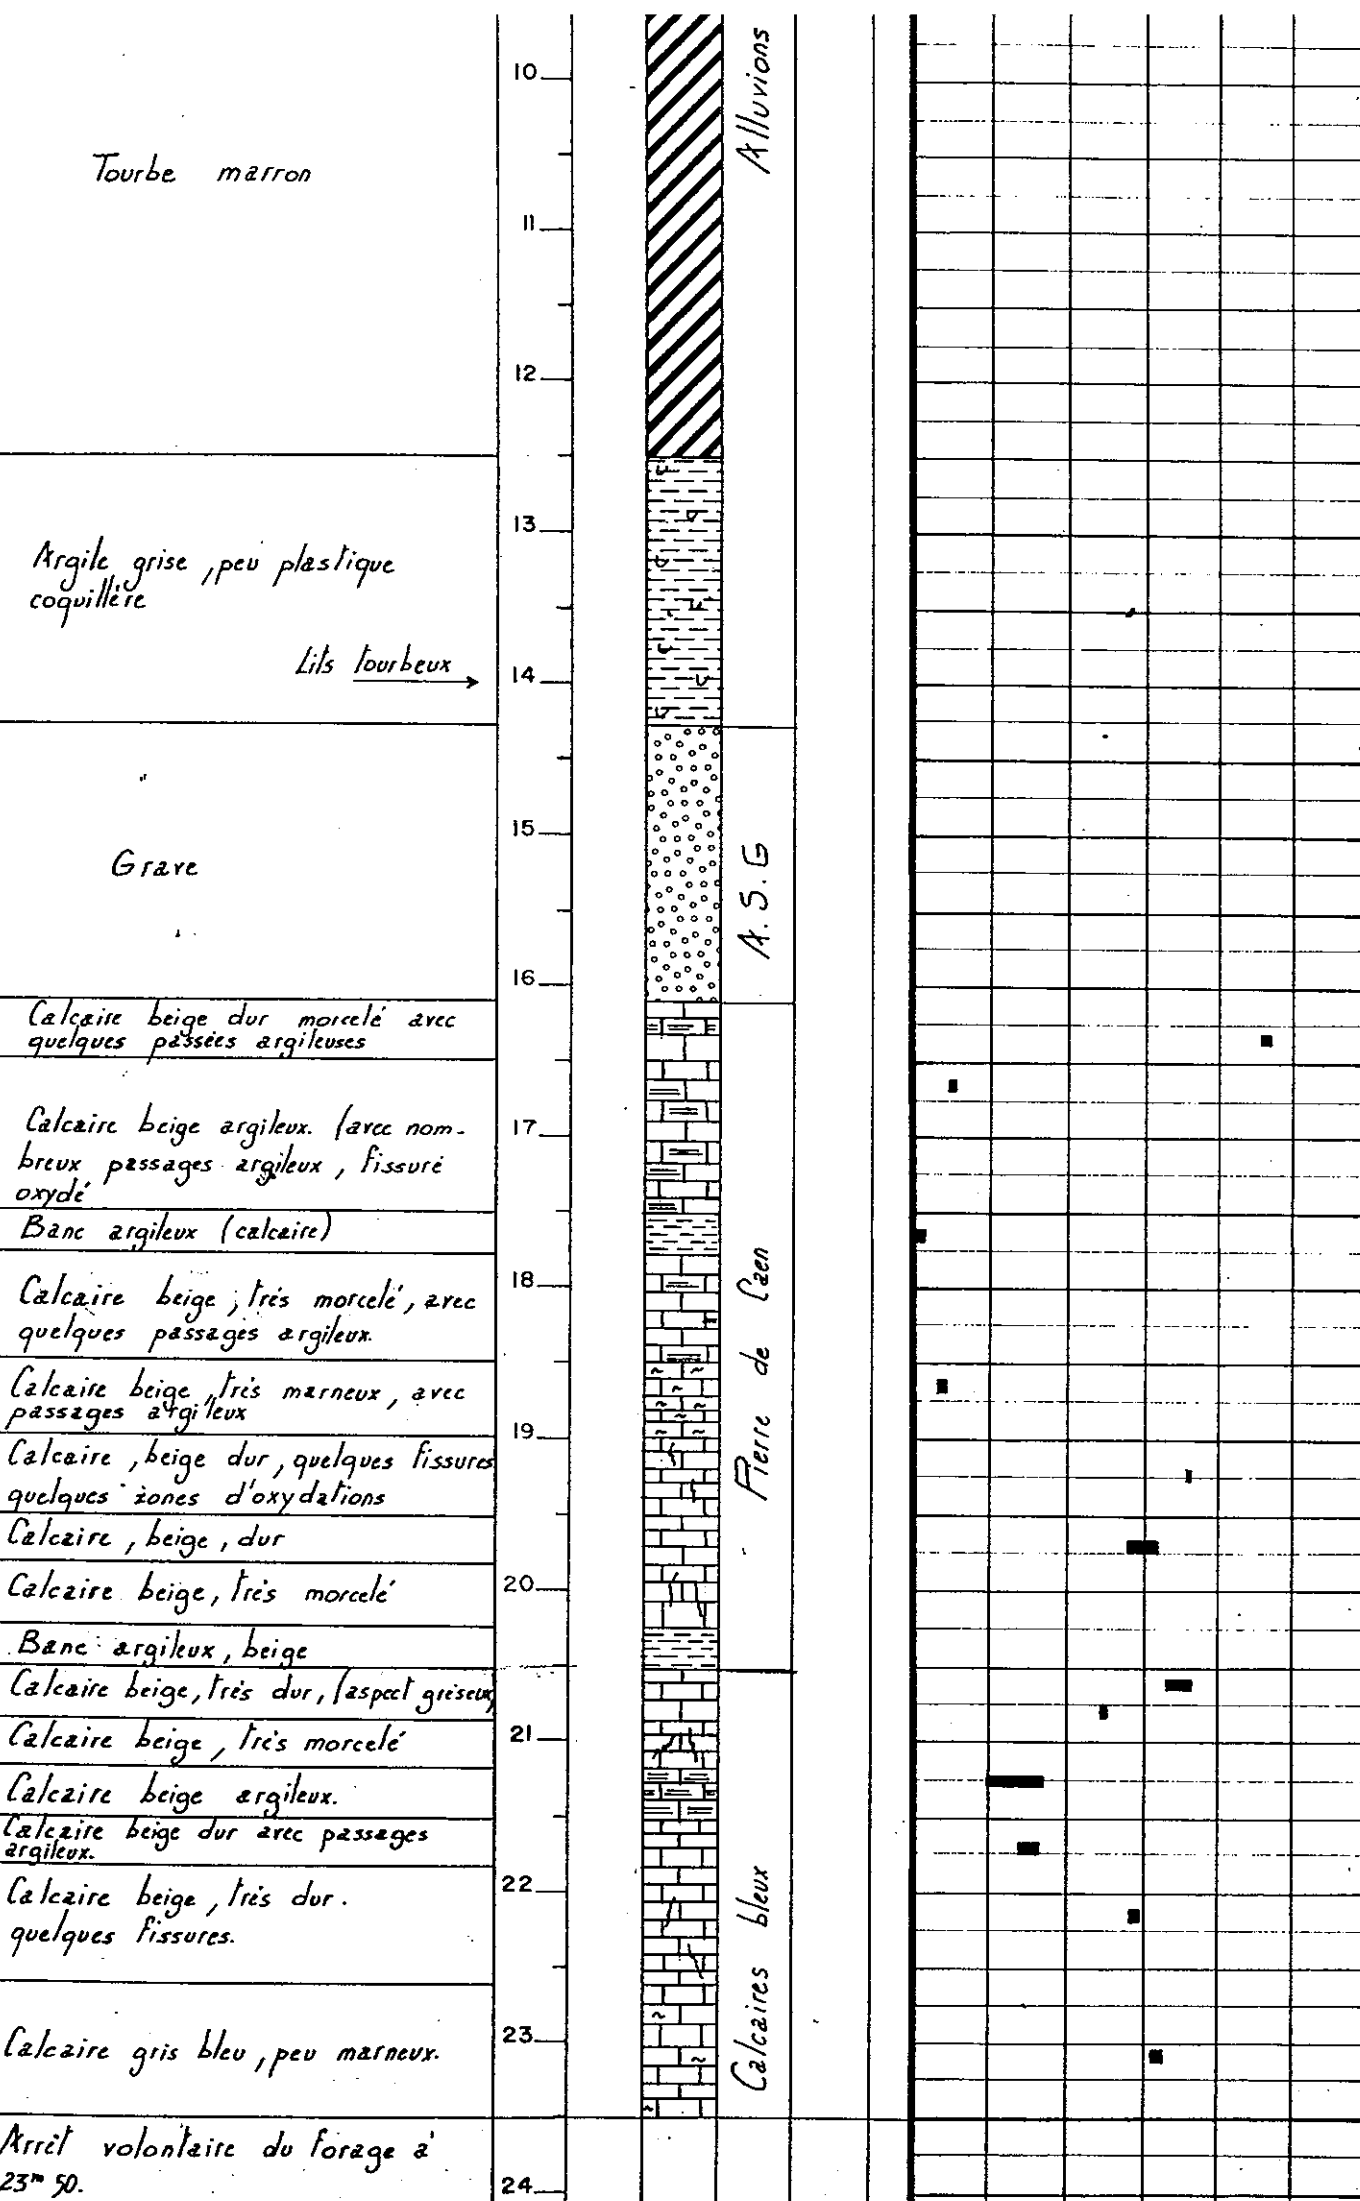 Tourbe marron
Argile grise, peu plastique
coquillère
Lits tourbeux
Grave
Calcaire beige dur morcelé avec
quelques passées argileuses
Calcaire beige argileux. (avec nom-
breux passages argileux, fissuré
oxydé
Banc argileux (calcaire)
Calcaire beige, très morcelé, avec
quelques passages argileux.
Calcaire beige, très marneux, avec
passages argileux
Calcaire, beige dur, quelques fissures
quelques zones d'oxydations
Calcaire, beige, dur
Calcaire beige, très morcelé
Banc argileux, beige
Calcaire beige, très dur, (aspect gréseux)
Calcaire beige, très morcelé
Calcaire beige argileux.
Calcaire beige dur avec passages
argileux.
Calcaire beige, très dur.
quelques fissures.
Calcaire gris bleu, peu marneux.
Arrêt volontaire du forage à
23m 50.
10
11
12
13
14
15
16
17
18
19
20
21
22
23
24
Alluvions
A.S.G
Pierre de Caen
Calcaires bleux